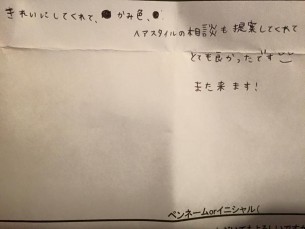 きれいにしてくれて、かみ色、
ヘアスタイルの相談も提案してくれて
とても良かったです
また来ます!
ペンネームorイニシャル(